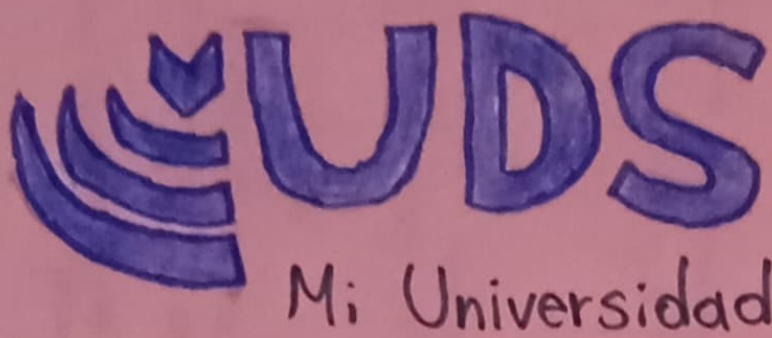 UDS
Mi Universidad